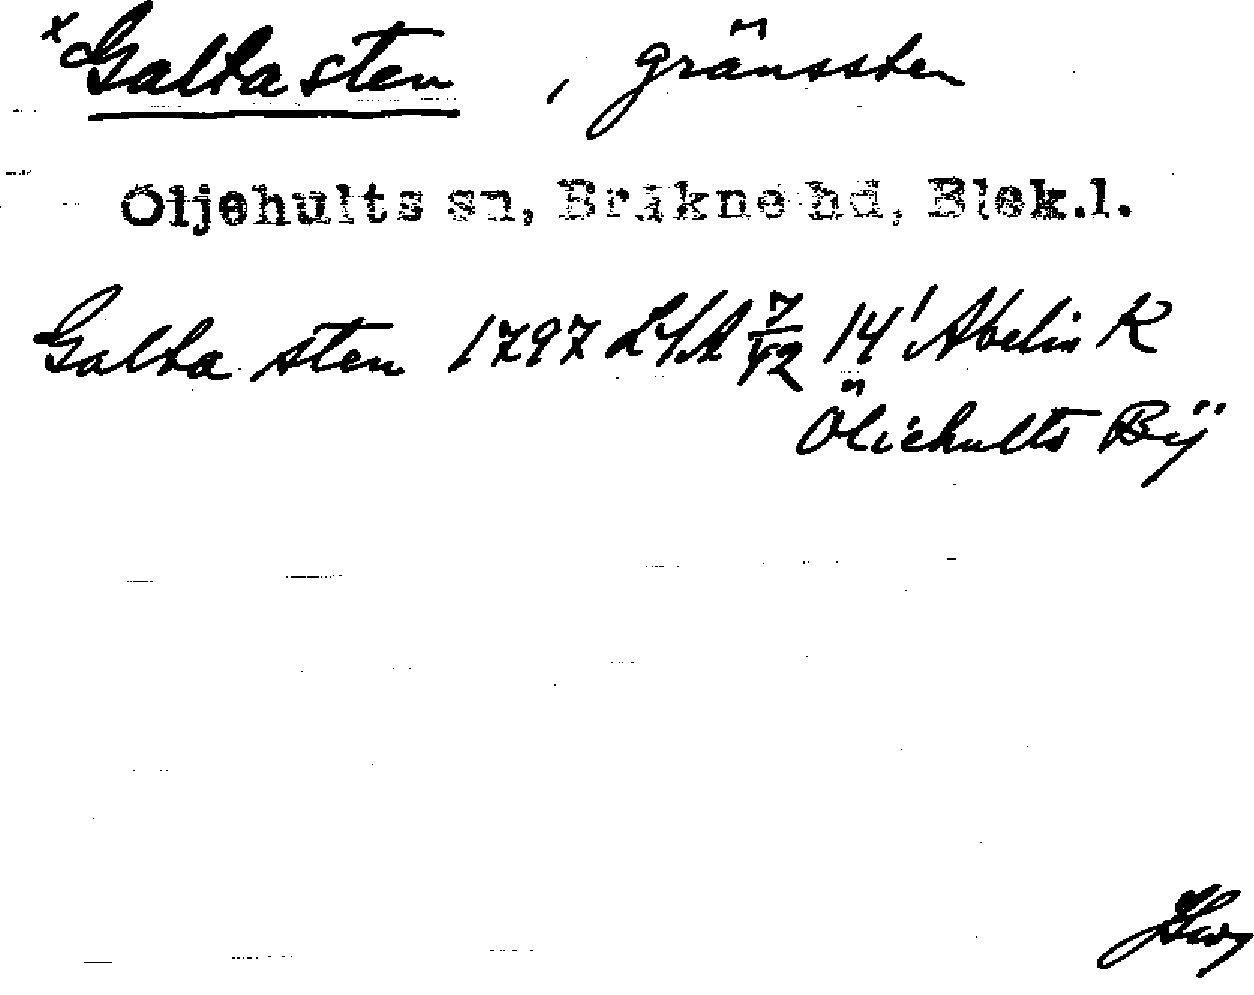 x Galtasten, gränssten
Öljehults sn, Bräkne hd, Blek.l.
Galta sten 1797 LSA 7/12 14' Abelin K
Öliehults Bÿ